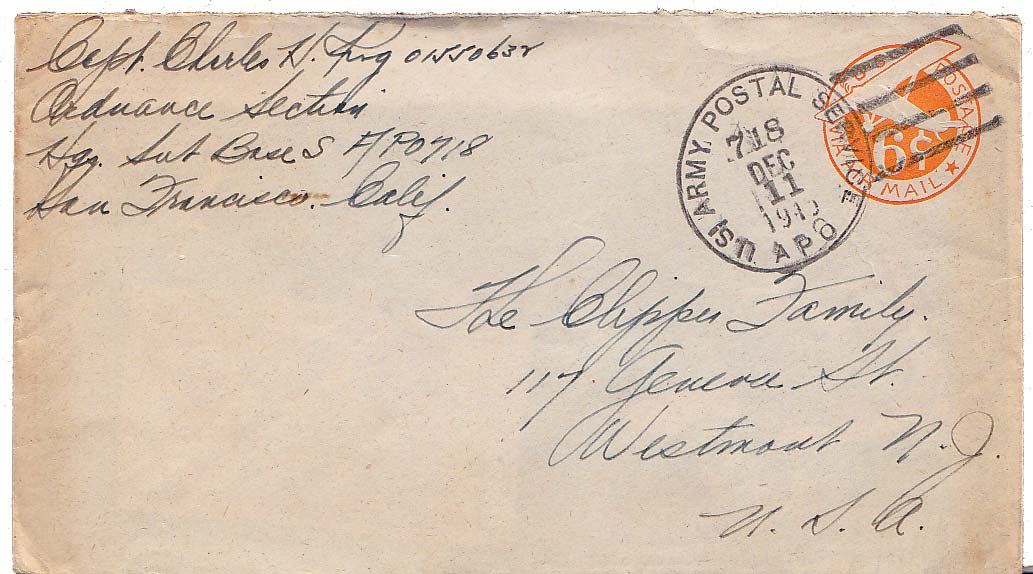 Capt. Charles H. 01550632
Ordnance Section
Hq. Sub Base S APO 718
San Francisco. Calif.
U.S. ARMY POSTAL SERVICE
718
DEC
11
APO
U.S. POSTAGE
VIA AIR MAIL
6¢
The Clipper Family.
117 Geneva St.
Westmont N. J.
U. S. A.